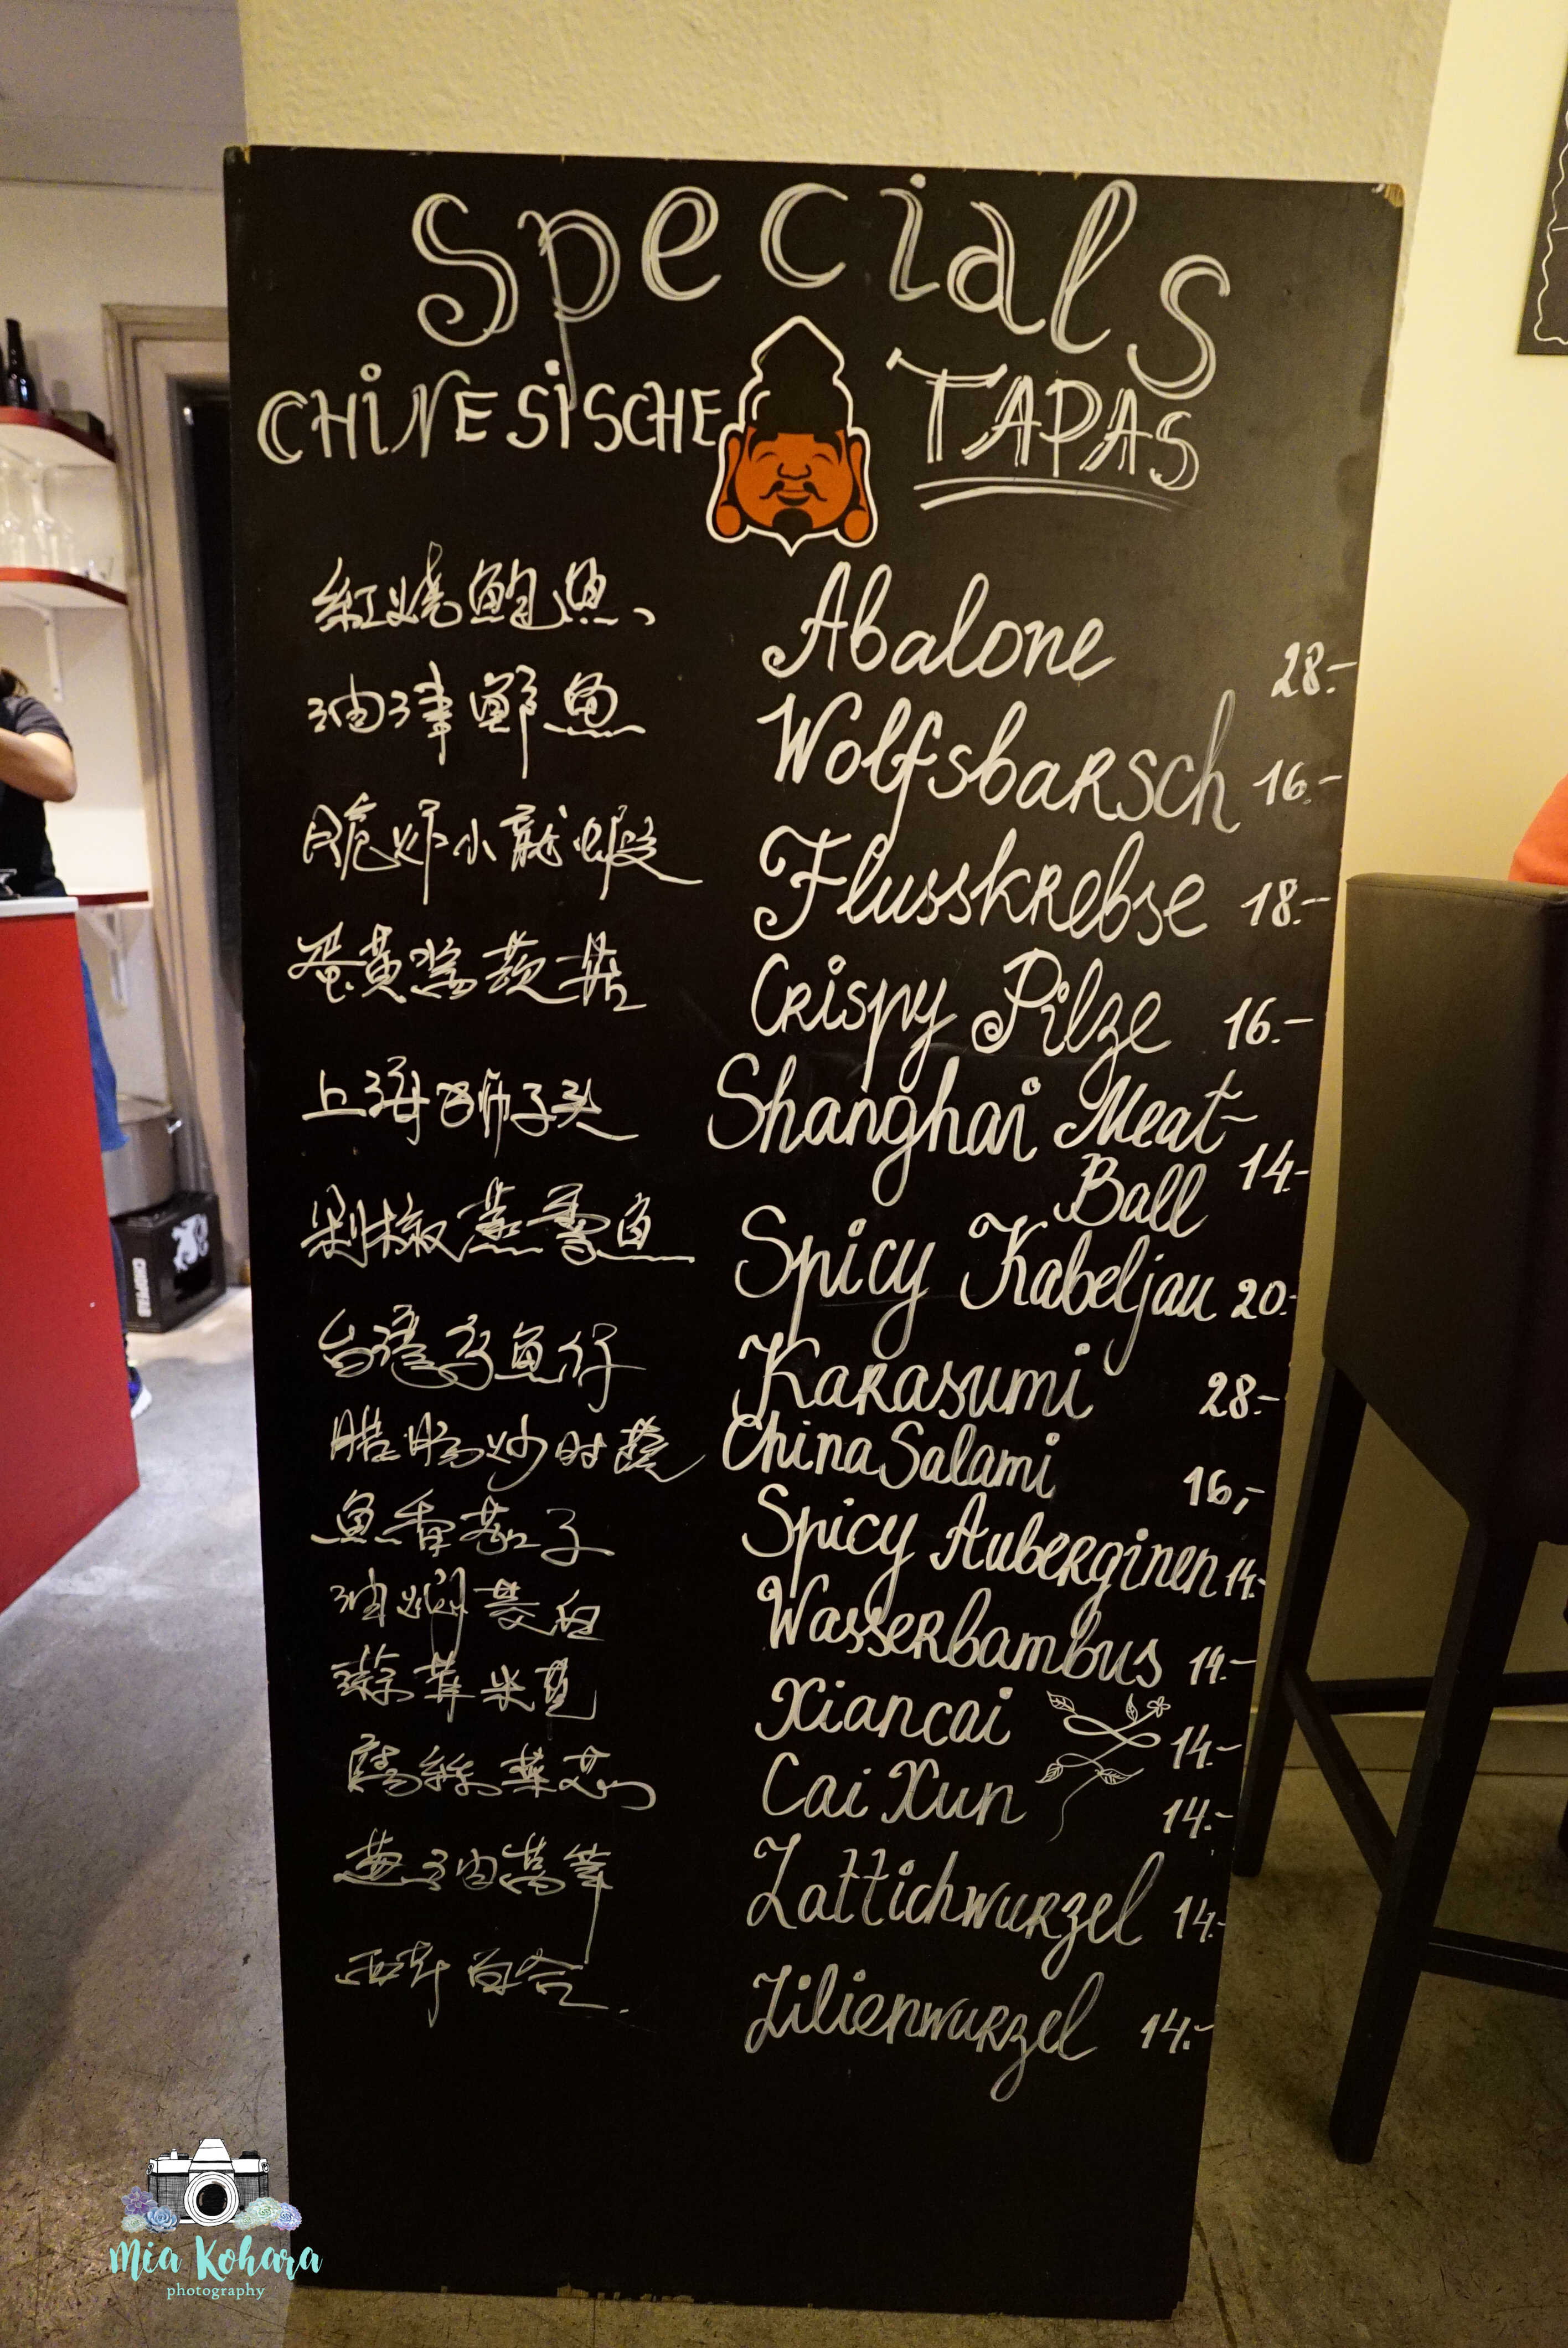 Specials
CHINESISCHE TAPAS
紅燒鮑魚 Abalone 28.-
油浸鮮魚 Wolfsbarsch 16.-
脆炸小龍蝦 Flusskrebse 18.-
蛋黃焗菇 Crispy Pilze 16.-
上海獅子头 Shanghai Meat-
Ball 14.-
剁椒蒸雪魚 Spicy Kabeljau 20.-
台灣烏魚仔 Karasumi 28.-
腊腸炒时蔬 China Salami 16,-
魚香茄子 Spicy Auberginen 14.-
油焖茭白 Wasserbambus 14.-
蒜茸米苋 Xiancai 14.-
菜 Cai Xun 14.-
葱油萵筍 Lattichwurzel 14.-
西芹百合 Lilienwurzel 14.-
Mia Kohara
photography